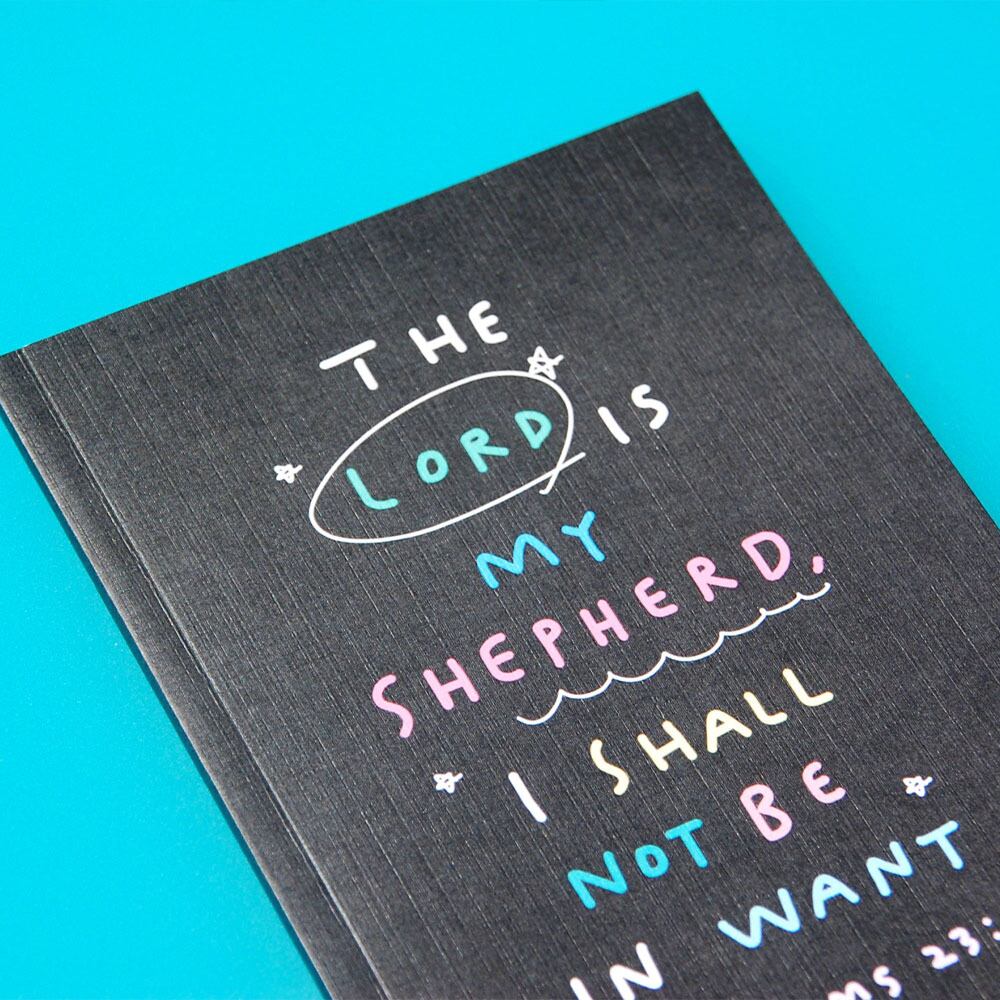 THE
LORD IS
MY
SHEPHERD,
I SHALL
NOT BE
IN WANT
23: